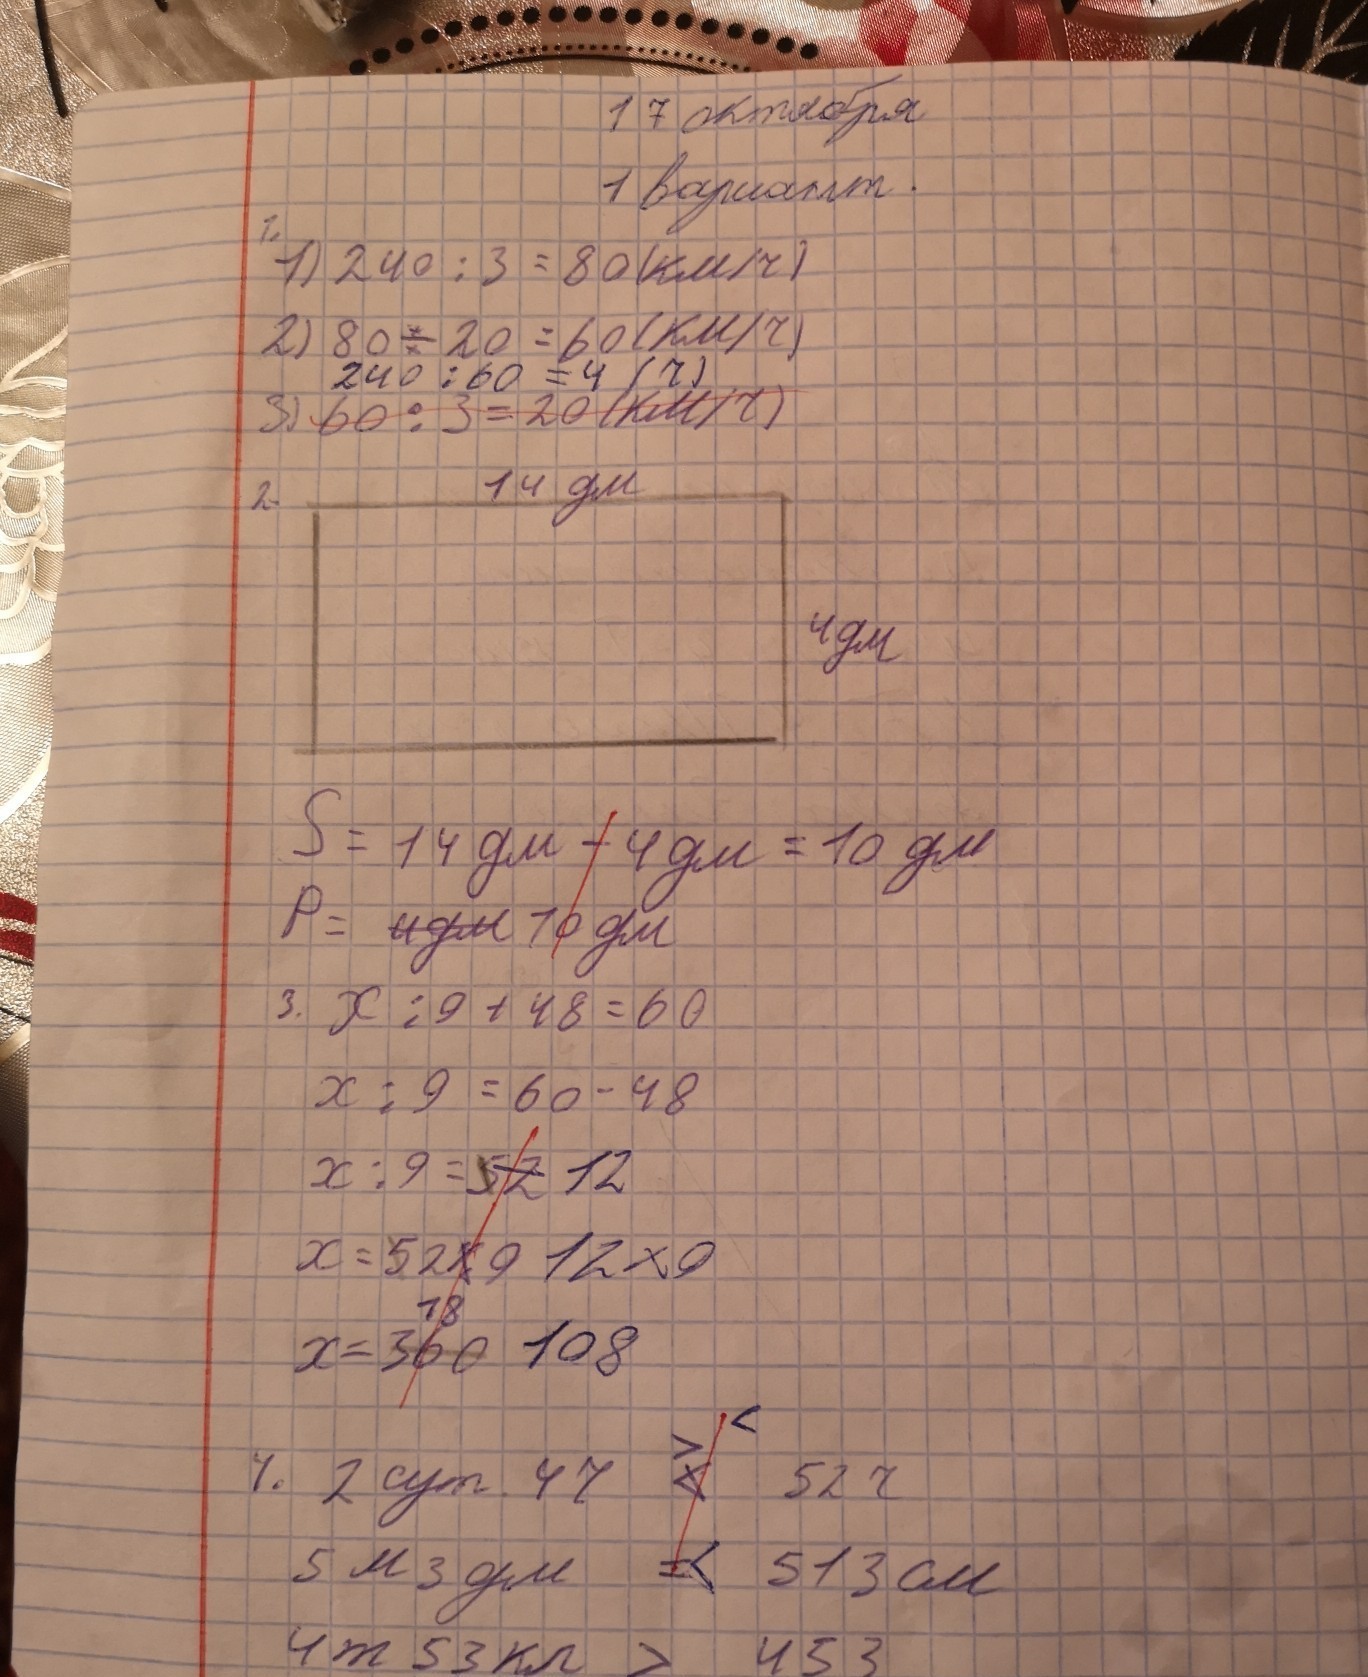 17 октября
1 вариант.
1.
1) 240 : 3 = 80 (км/ч)
2) 80 - 20 = 60 (км/ч)
240 : 60 = 4 (ч)
3) 60 : 3 = 20 (км/ч)
2.
14 дм
4 дм
S = 14 дм - 4 дм = 10 дм
P = 4дм 10 дм
3. x : 9 + 48 = 60
x : 9 = 60 - 48
x : 9 = 52 12
x = 52 x 9 12 x 9
18
x = 360 108
<
>
4. 2 сут. 4ч < 52 ч
5 м 3 дм =< 513 см
4т 53 кг > 453